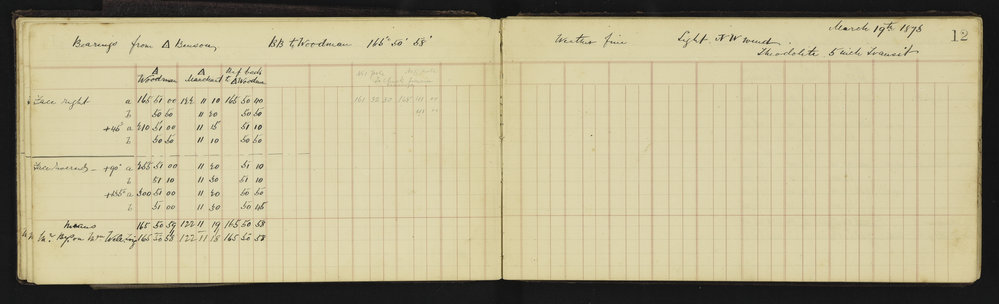 Bearings from △ Benson BB to Woodman 165° 50' 58"
△ Woodman △ Merchant Ref back to △ Woodman
Face right a 165 51 00 122 11 10 165 50 40
b 50 50 11 20 50 50
+45° a 210 51 00 11 15 51 10
b 50 50 11 10 50 50
Face reversed - +90° a 255 51 00 11 20 51 10
b 51 10 11 30 51 10
+135° a 300 51 00 11 20 50 50
b 51 00 11 30 50 45
Means 165 50 59 122 11 19 165 50 58
165 50 58 122 11 18 165 50 58
March 19th 1878
12
Weather fine Light N W wind
Theodolite 5 inch Transit